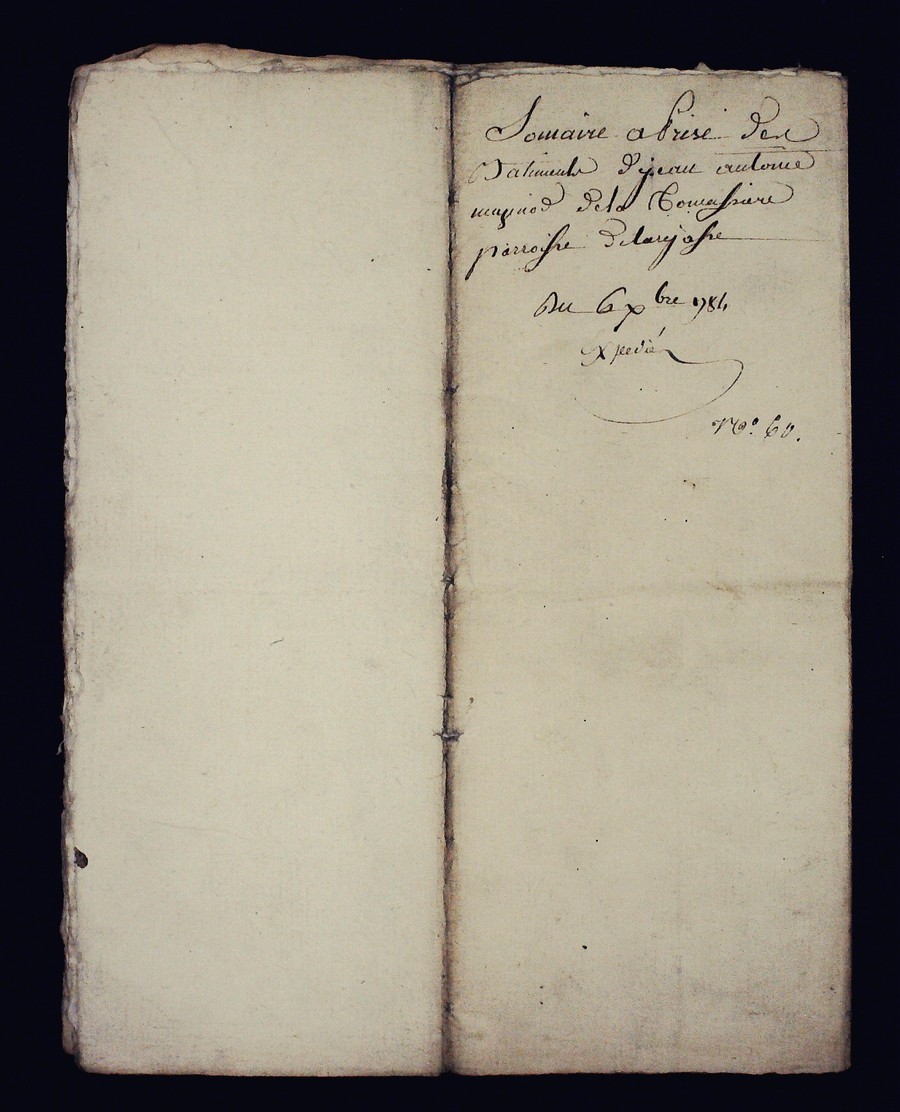 Somaire a Prisé des
Batiments de jean antoine
magnod de la Tomassiere
parroisse de larajasse
Du 6 xbre 1784
Expedié
No. 60.